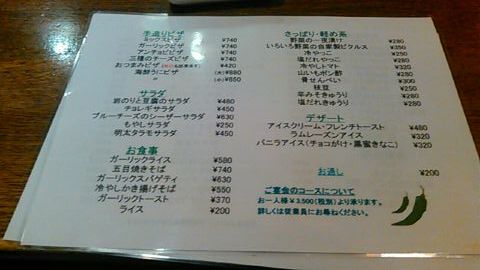 手造りピザ
ミックスピザ ¥740
ガーリックピザ ¥740
アンチョビピザ ¥740
三種のチーズピザ ¥740
おつまみピザ ¥420
海鮮うにピザ (大) ¥880
(小) ¥650
サラダ
岩のりと豆腐のサラダ ¥480
チョレギサラダ ¥450
ブルーチーズのシーザーサラダ ¥630
もやしサラダ ¥250
明太タラモサラダ ¥450
お食事
ガーリックライス ¥580
五目焼きそば ¥740
ガーリックスパゲティ ¥630
冷やしかき揚げそば ¥550
ガーリックトースト ¥370
ライス ¥200
さっぱり・軽め系
野菜の一夜漬け ¥280
いろいろ野菜の自家製ピクルス ¥350
冷やっこ ¥250
塩だれやっこ ¥280
冷やしトマト ¥320
山いもポン酢 ¥280
骨せんべい ¥300
枝豆 ¥250
辛みそきゅうり ¥280
塩だれきゅうり ¥280
デザート
アイスクリーム・フレンチトースト ¥480
ラムレーズンアイス ¥320
バニラアイス(チョコがけ・黒蜜きなこ) ¥320
お通し ¥200
ご宴会のコースについて
お一人様¥3,500(税別)より承ります。
詳しくは従業員にお尋ねください。